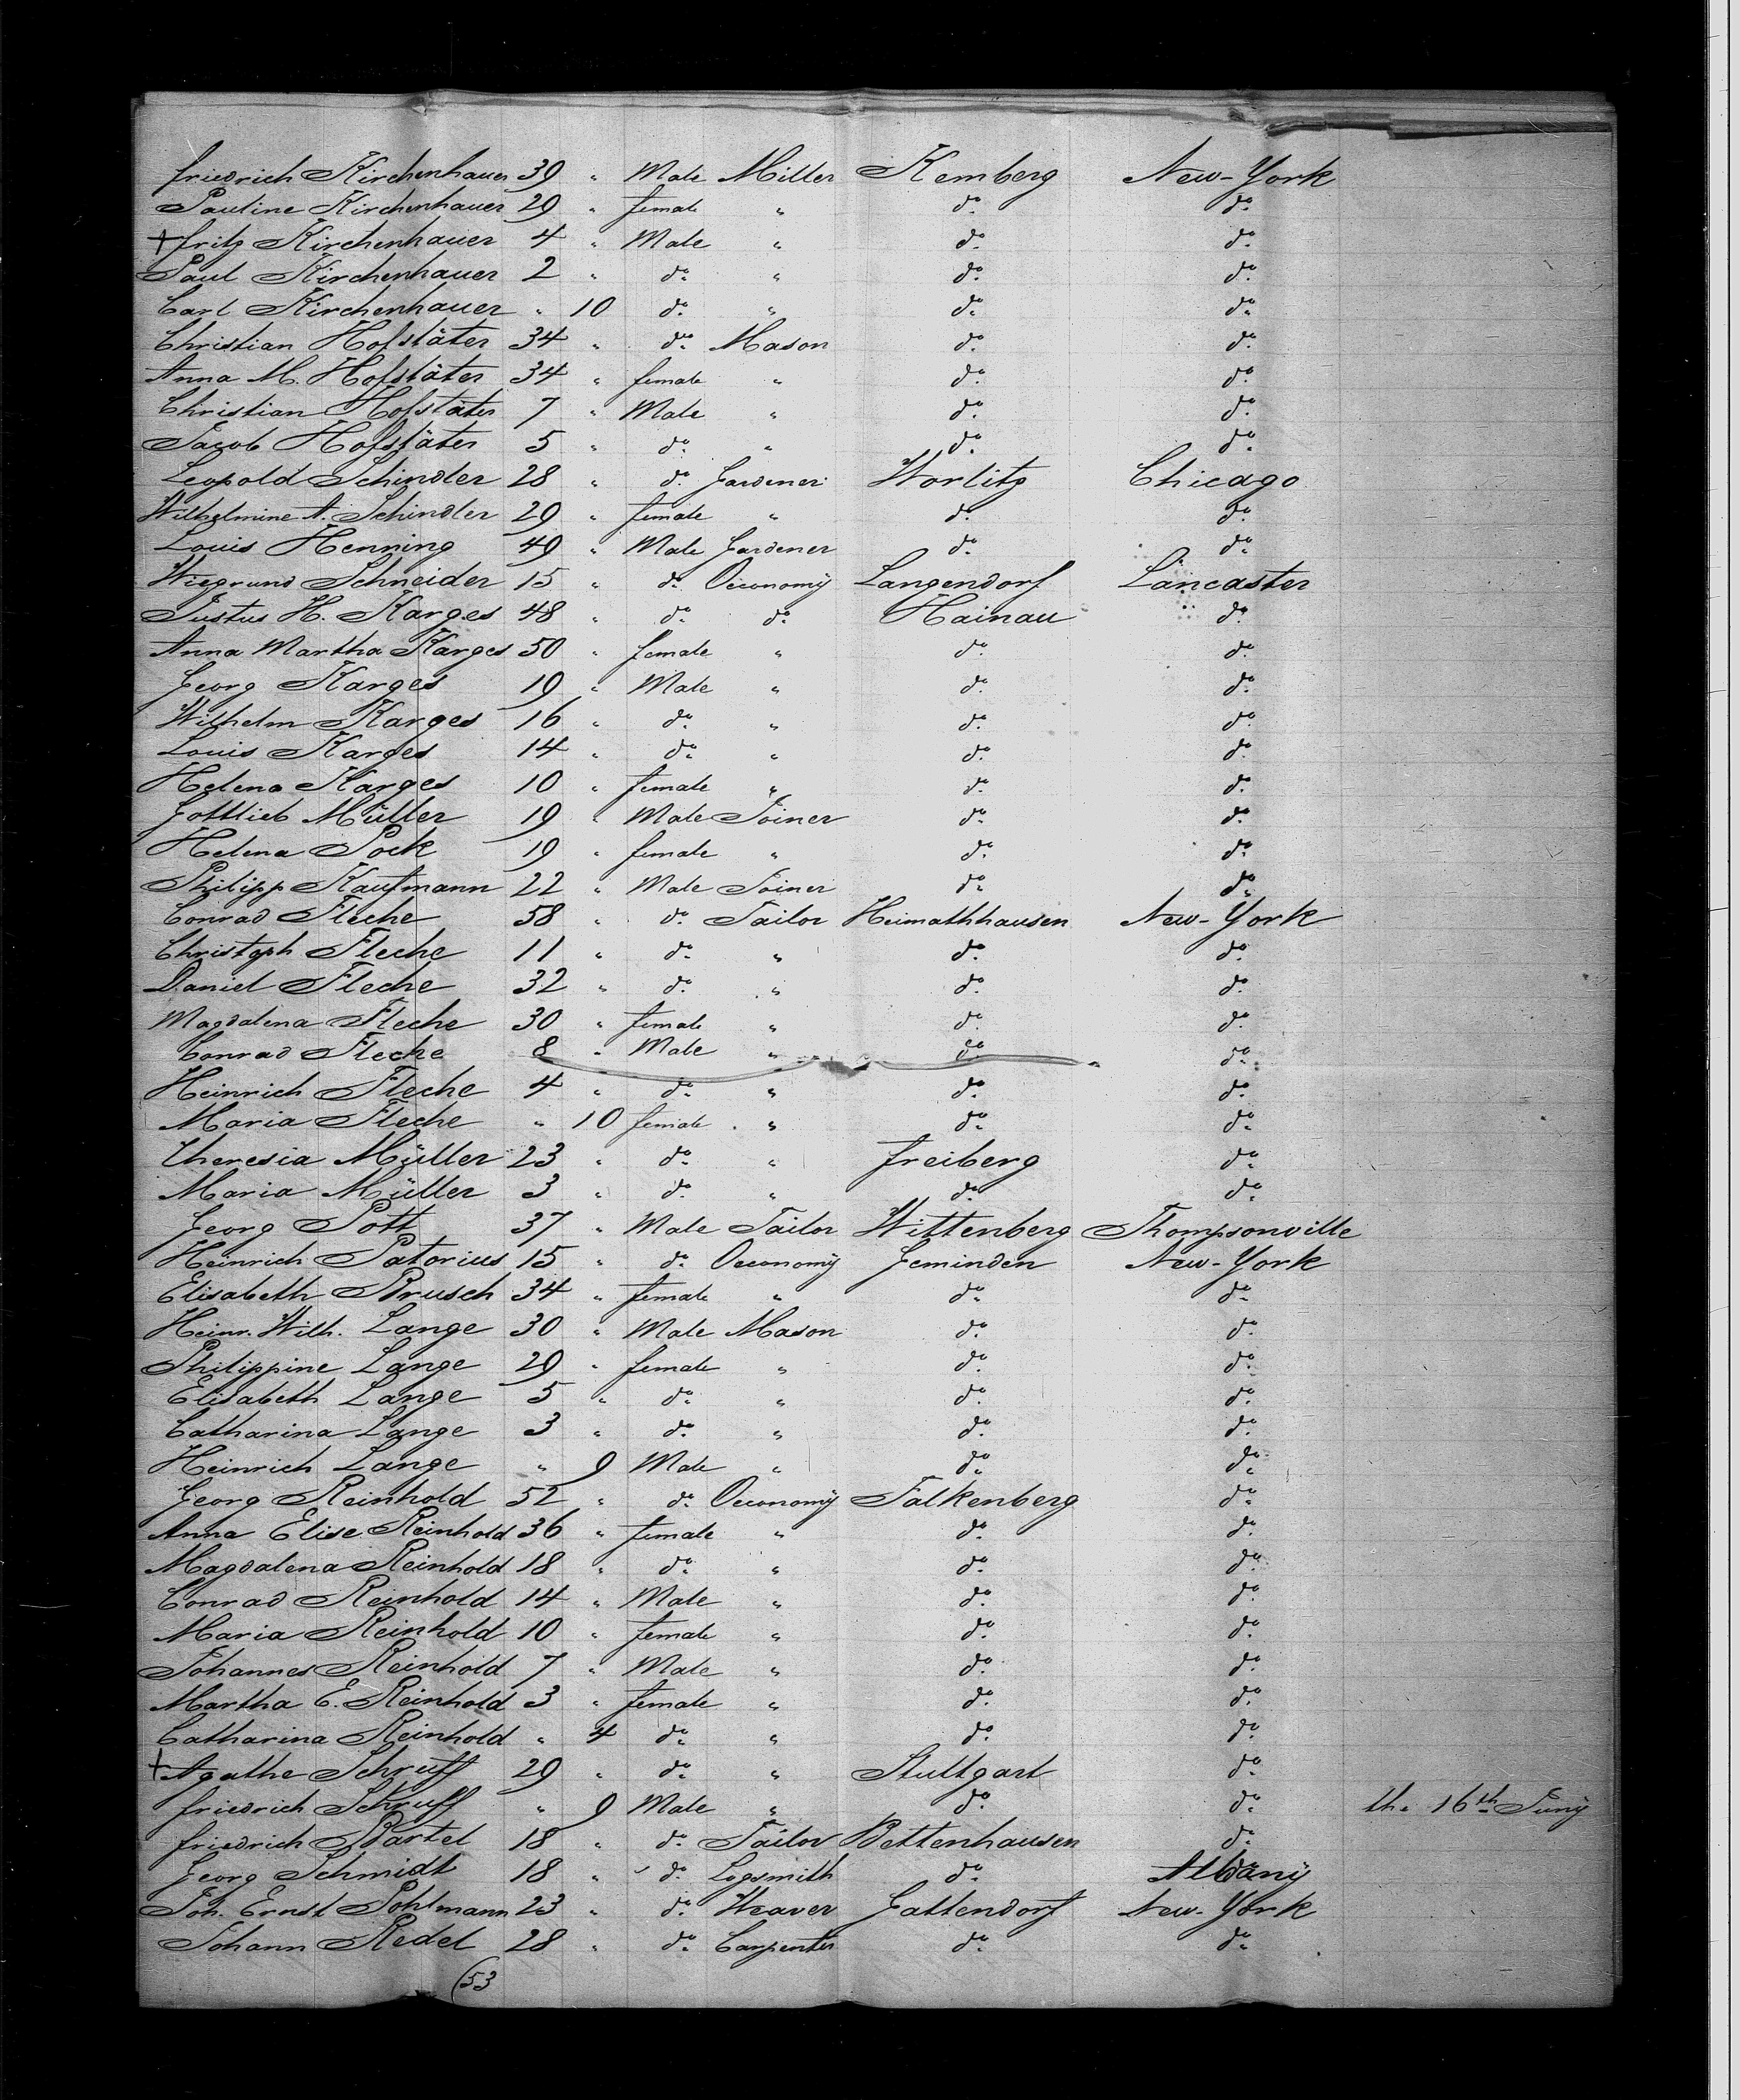 Friedrich Kirchenhauer 39 " Male Miller Kemberg New-York
Pauline Kirchenhauer 29 " female " do. do.
+ Fritz Kirchenhauer 4 " Male " do. do.
Paul Kirchenhauer 2 " do. " do. do.
Carl Kirchenhauer " 10 do. " do. do.
Christian Hofstäter 34 " do. Mason do. do.
Anna M. Hofstäter 34 " female " do. do.
Christian Hofstäter 7 " Male " do. do.
Jacob Hofstäter 5 " do. " do. do.
Leopold Schindler 28 " do. Gardener Worlitz Chicago
Wilhelmine A. Schindler 29 " female " do. do.
Louis Henning 49 " Male Gardener do. do.
Wiegrund Schneider 15 " do. Oeconomÿ Langendorf Lancaster
Justus H. Karges 48 " do. do. Hainau do.
Anna Martha Karges 50 " female " do. do.
Georg Karges 19 " Male " do. do.
Wilhelm Karges 16 " do. " do. do.
Louis Karges 14 " do. " do. do.
Helena Karges 10 " female " do. do.
Gottlieb Müller 19 " Male Joiner do. do.
Helena Pock 19 " female " do. do.
Philipp Kaufmann 22 " Male Joiner do. do.
Conrad Fleche 58 " do. Tailor Heimathhausen New-York
Christoph Fleche 11 " do. " do. do.
Daniel Fleche 32 " do. " do. do.
Magdalena Fleche 30 " female " do. do.
Conrad Fleche 8 " Male " do. do.
Heinrich Fleche 4 " do. " do. do.
Maria Fleche " 10 female " do. do.
Theresia Müller 23 " do. " Freiberg do.
Maria Müller 3 " do. " do. do.
Georg Pott 37 " Male Tailor Wittenberg Thompsonville
Heinrich Patorius 15 " do. Oeconomÿ Geminden New-York
Elisabeth Brusch 34 " female " do. do.
Heinr. Wilh. Lange 30 " Male Mason do. do.
Philippine Lange 29 " female " do. do.
Elisabeth Lange 5 " do. " do. do.
Catharina Lange 3 " do. " do. do.
Heinrich Lange " 9 Male " do. do.
Georg Reinhold 52 " do. Oeconomÿ Falkenberg do.
Anna Elise Reinhold 36 " female " do. do.
Magdalena Reinhold 18 " do. " do. do.
Conrad Reinhold 14 " Male " do. do.
Maria Reinhold 10 " female " do. do.
Johannes Reinhold 7 " Male " do. do.
Martha E. Reinhold 3 " female " do. do.
Catharina Reinhold " 4 do. " do. do.
+ Agathe Schruff 29 " do. " Stuttgart do.
Friedrich Schruff " 9 Male " do. do. the 16th Junÿ
Friedrich Bartel 18 " do. Tailor Bettenhausen do.
Georg Schmidt 18 " do. Logsmith do. Albanÿ
Joh. Ernst Pohlmann 23 " do. Weaver Gattendorf New-York
Johann Redel 28 " do. Carpenter do. do.
(53